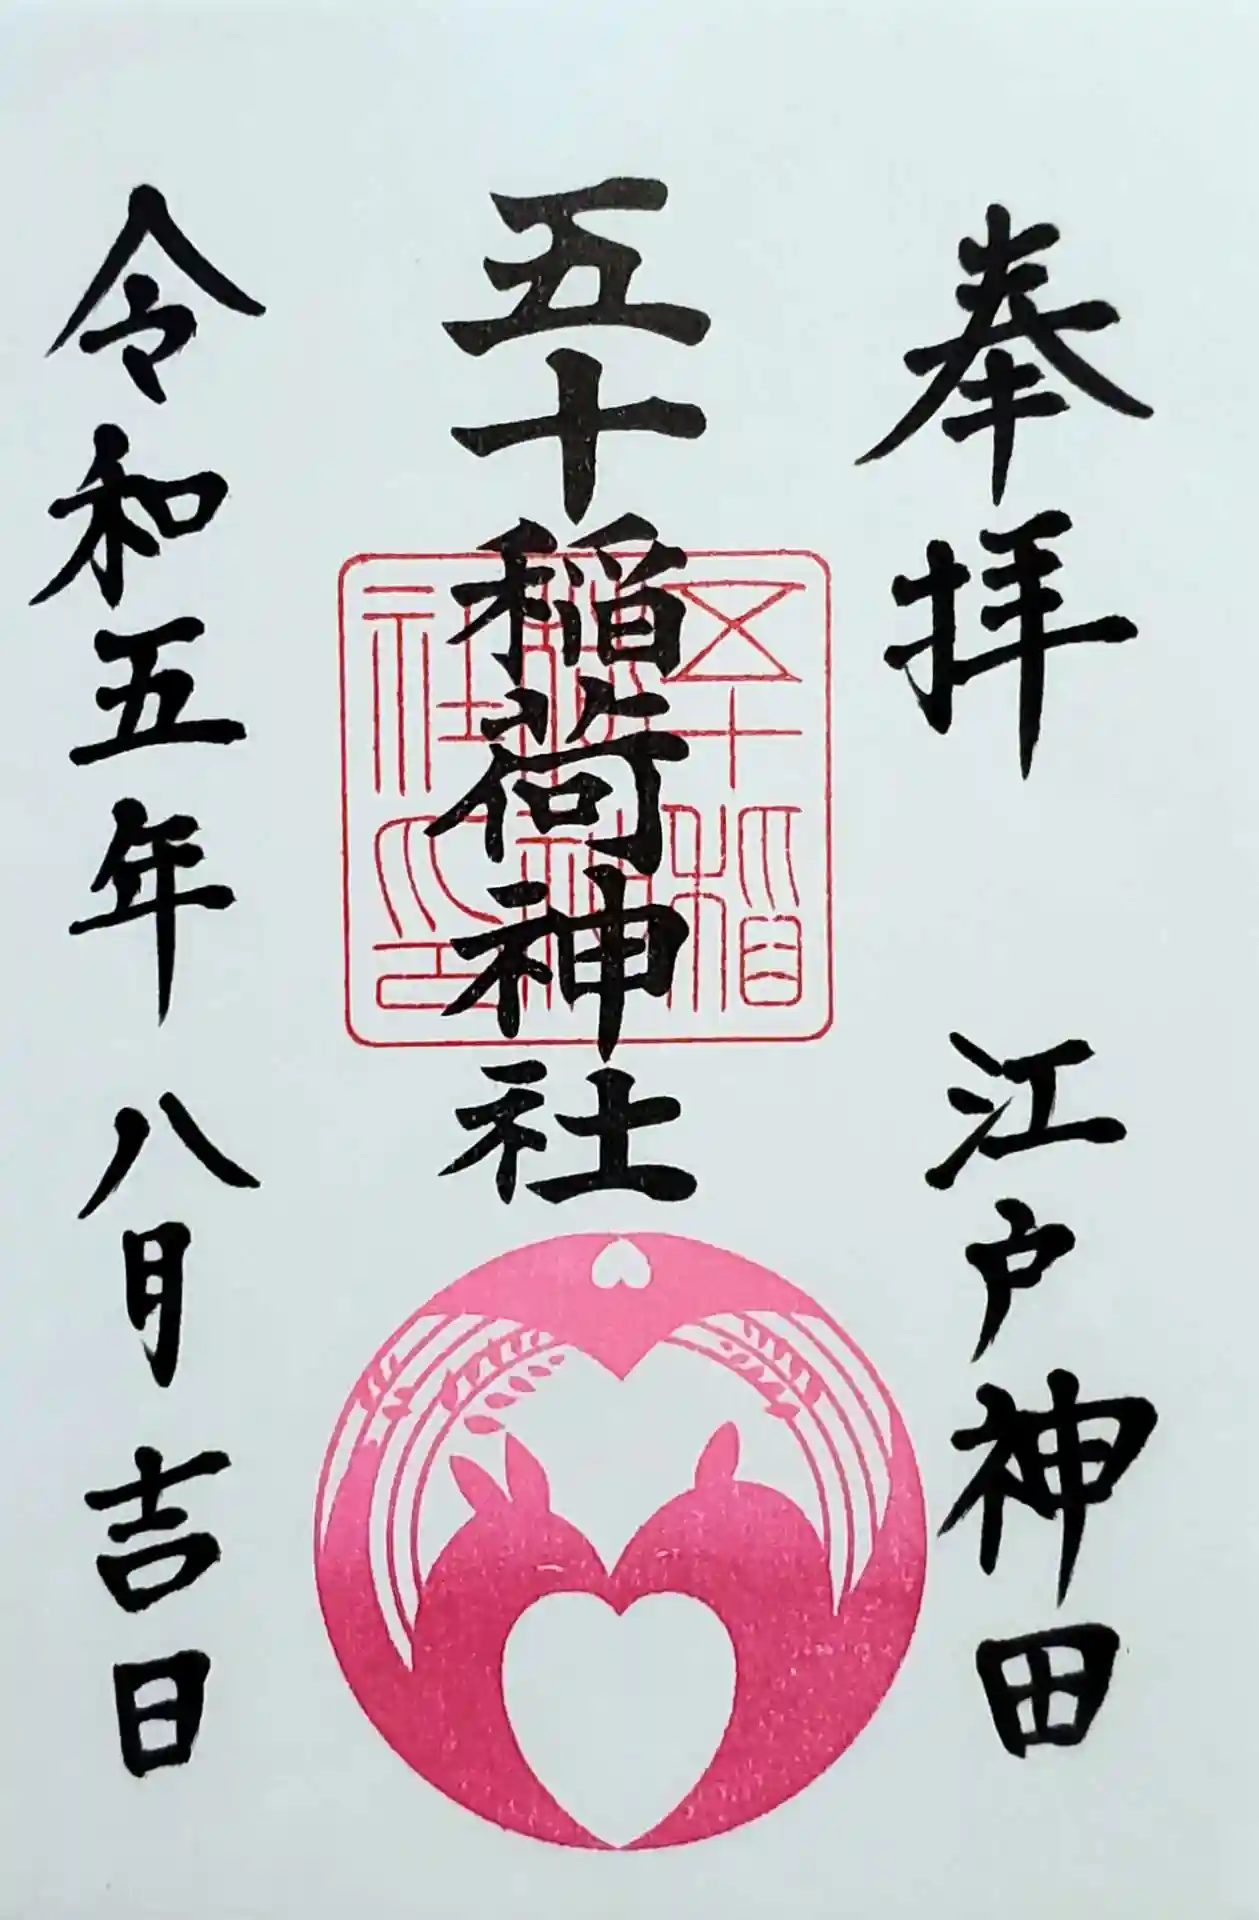 奉拝 江戸神田
五十稲荷神社
五十稲荷神社印
令和五年八月吉日